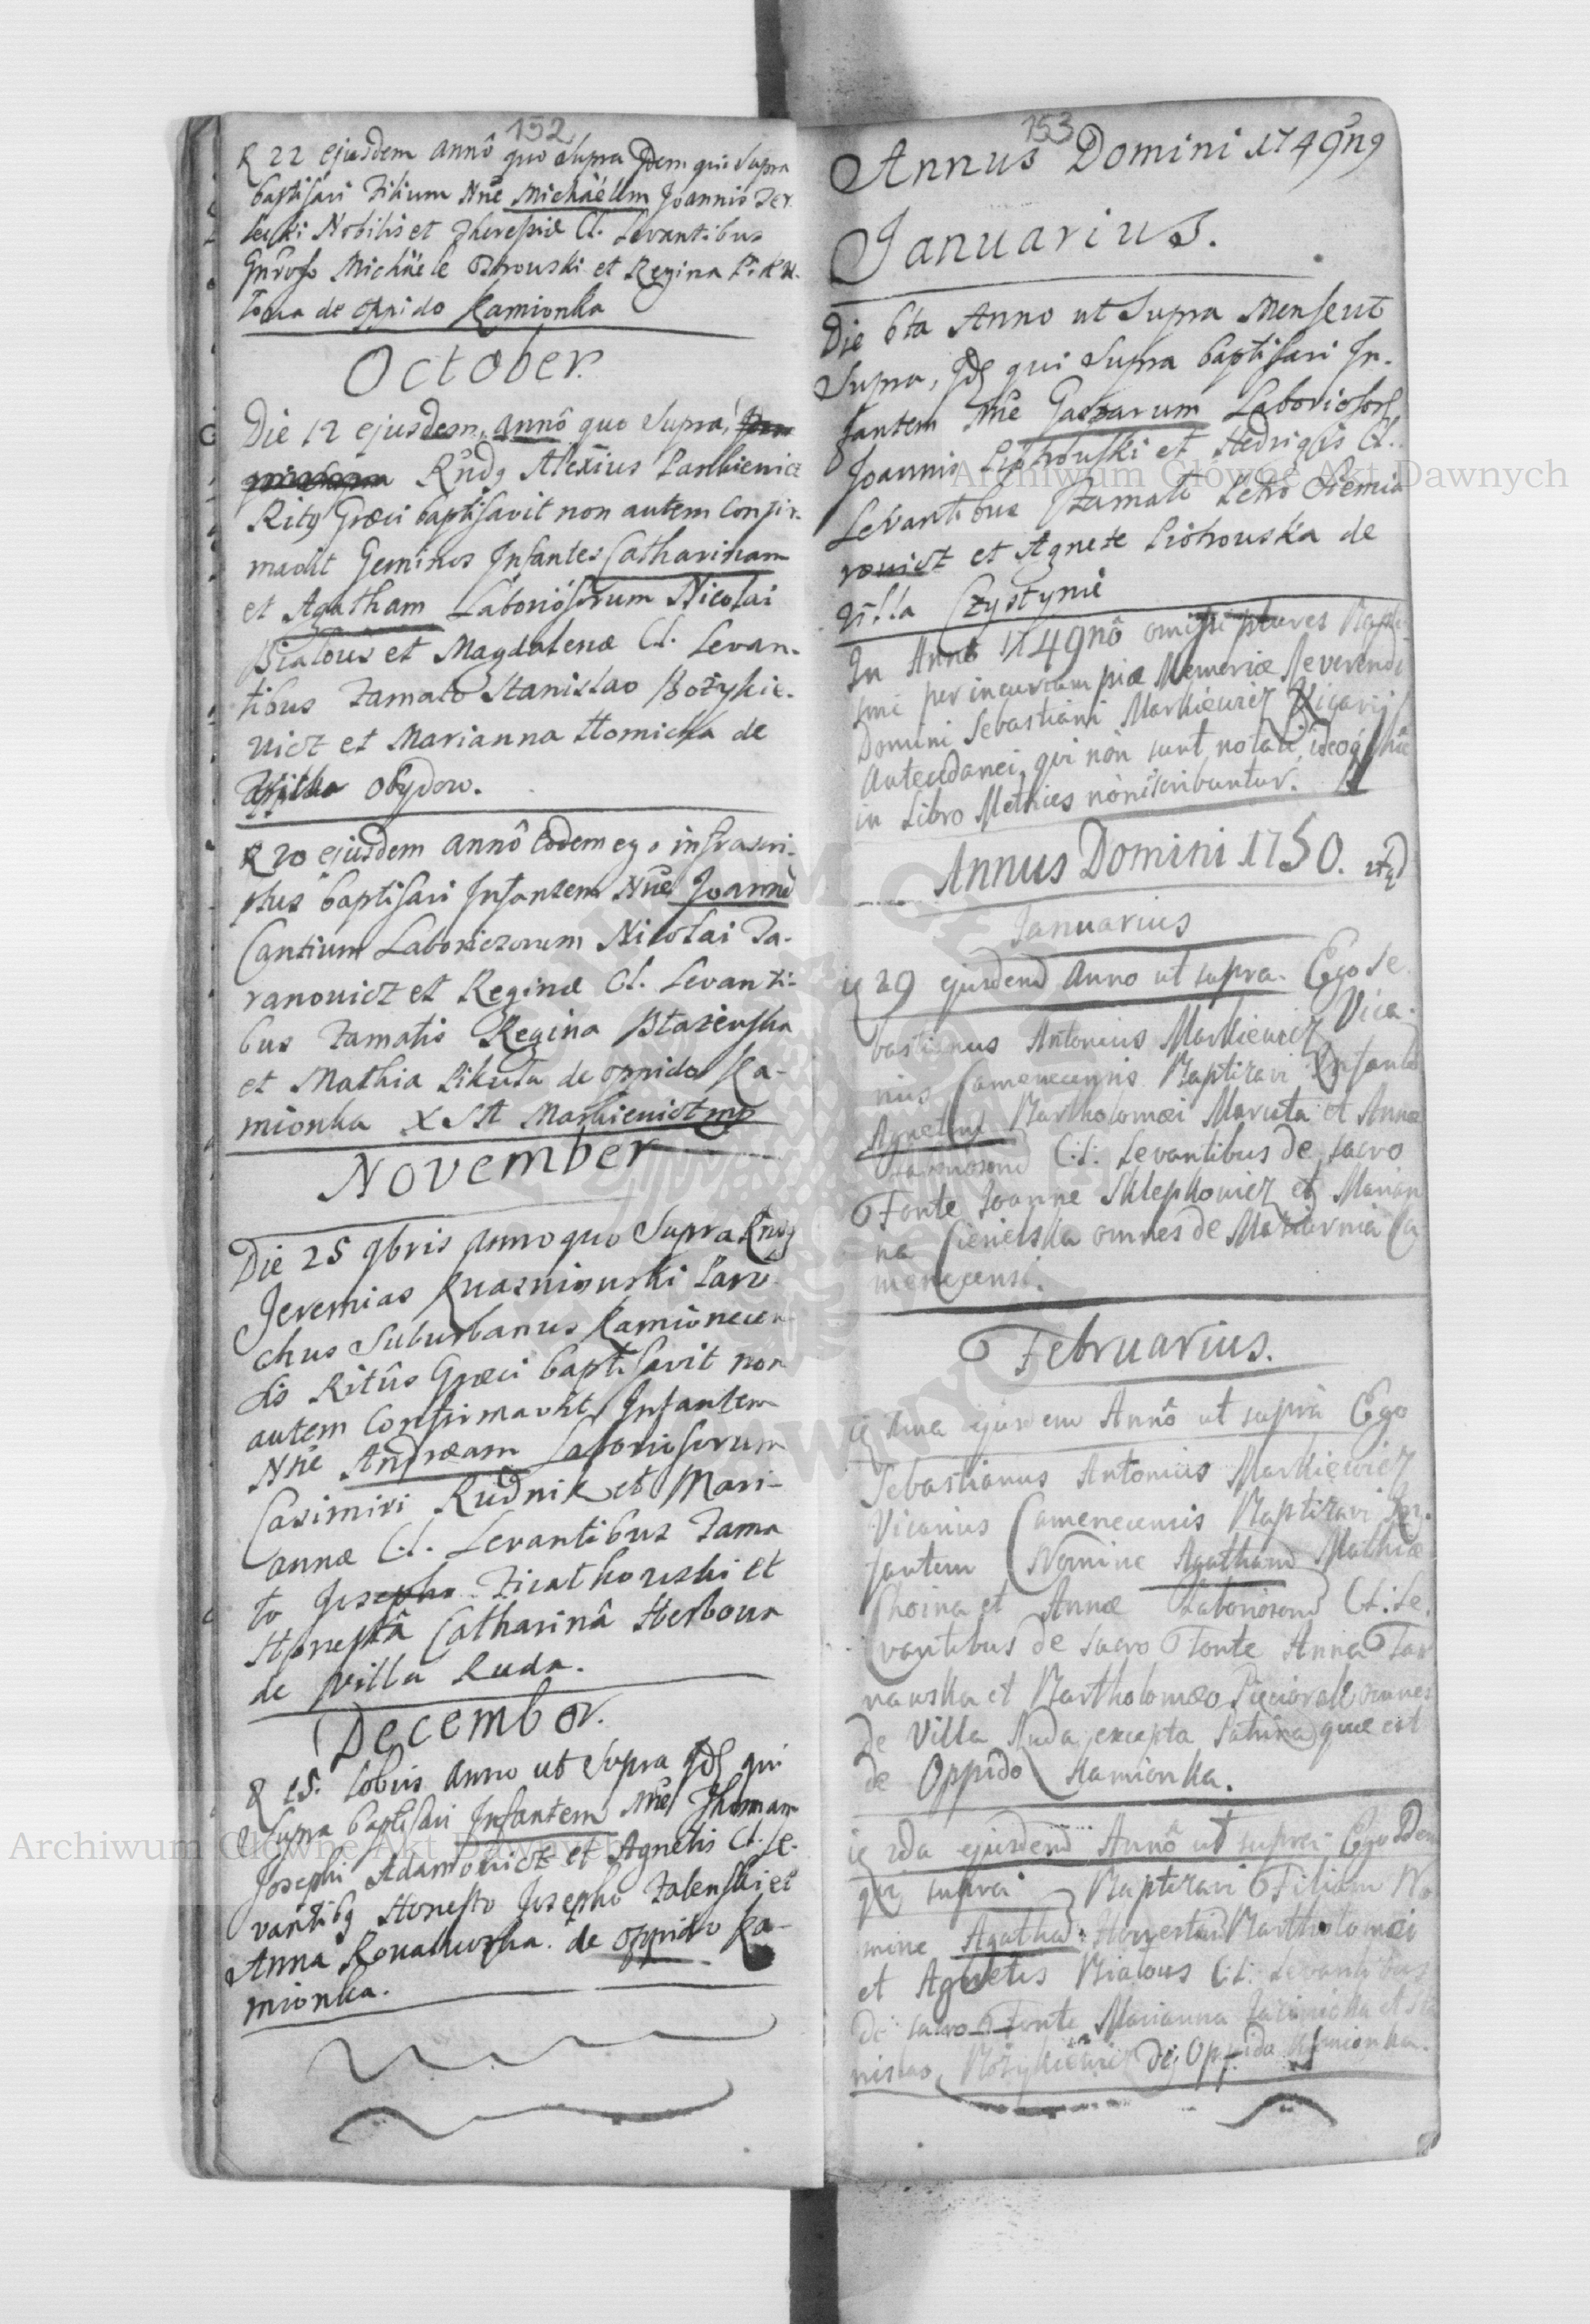 152
R 22 ejusdem annô quo Supra Jdem qui Supra
baptisavi Filium Nne Michaëlem Joannis Ter
lecki Nobilis et Theresiæ C.l. Levantibus
Gnroso Michaele Ostrouski et Regina Pikul
toua de oppido Kamionka
October
Die 12 ejusdem, annô quo Supra,
Rndg Alexius Pashievicz
Ritg Græci baptisavit non autem Confir-
mavit Geminos Infantes Catharinam
et Agatham Laboriosorum Nicolai
Białous et Magdalenæ C.l. Levan-
tibus Famato Stanislao Bożykie-
wicz et Marianna Homicka de
Obydow.
R 20 ejusdem annô Eodem ego infrascri-
ptus baptisavi Infantem Nne Joanne
Cantium Laboriezorum Nicolai Ta-
ranouicz et Reginæ C.l. Levanti-
bus Famatis Regina Błazeuska
et Mathia Pikuła de oppido Ka-
mionka X SA Markieuicz mp
November
Die 25 9bris Anno quo Supra Rndg
Jeremias Kuaznieuski Paro-
chus Suburbanus Kamionecen
sis Ritûs Græci baptisavit non
autem Confirmavit Infantem
Nne Andræam Laboriosorum
Casimiri Rudnik et Mari-
annæ C.l. Levantibus Fama
to Josepho et
Honestâ Catharinâ Herboua
de Villa Ruda.
December.
R 15. Anno ut Supra Jd qui
Supra baptisavi Infantem Nne Thomam
Josephi Adamouicz et Agnetis C.l. Le-
vantibg Honesto Josepho Zalenski et
Anna Koualkoska de oppido Ka-
mionka.
153
Annus Domini 1749n9
Januarius.
Die 6ta Anno ut Supra Mense ut
Supra, Jd qui Supra baptisavi In-
fantem Nne Gasparum Laboriosor
Joannis Piotrouski et Hedvigis C.l.
Levantibus Famato Petro Jremia
rouicz et Agnete Piotrouska de
Villa Czystynie
In Anno 1749nô omissi plures Bapti-
smi per incuriam piæ Memoriæ Reverendi
Domini Sebastiani Markiewicz Vicarij
Antecedanei, qui non sunt notati, ideoq hic
in Libro Metrices non scribuntur.
Annus Domini 1750.
Januarius
ie 29 ejusdem Anno ut supra. Ego Se
bastianus Antonius Markiewicz Vica-
rius Camenecensis Baptizavi Infante
Agnetem Bartholomæi Maruta et Annæ
C.l. Levantibus de sacro
Fonte Joanne Sklepkowicz et Marian
na Cienelska omnes de Maziarnia Ca
menecensi.
Februarius.
ie ejusdem Annô ut suprà Ego
Sebastianus Antonius Markiewicz
Vicarius Camenecensis Baptizavi In-
fantem Nomine Agatham Mathiæ
Choina et Annæ Laboriosorum C.l. Le
vantibus de sacro Fonte Anna Tar
nawska et Bartholomæo Pieciorak omnes
de Villa Ruda, excepta Patrina quæ est
de Oppido Kamionka.
ie 2da ejusdem Annô ut supra Ego Idem
qui supra Baptizavi Filiam No
mine Agatham Honestorum Bartholomæi
et Agnetis Białous C.l. Levantibus
de sacro Fonte Marianna et Sta
nislao Bożykiewicz de Oppido Kamionka.
Archiwum Główne Akt Dawnych
Archiwum Główne Akt Dawnych